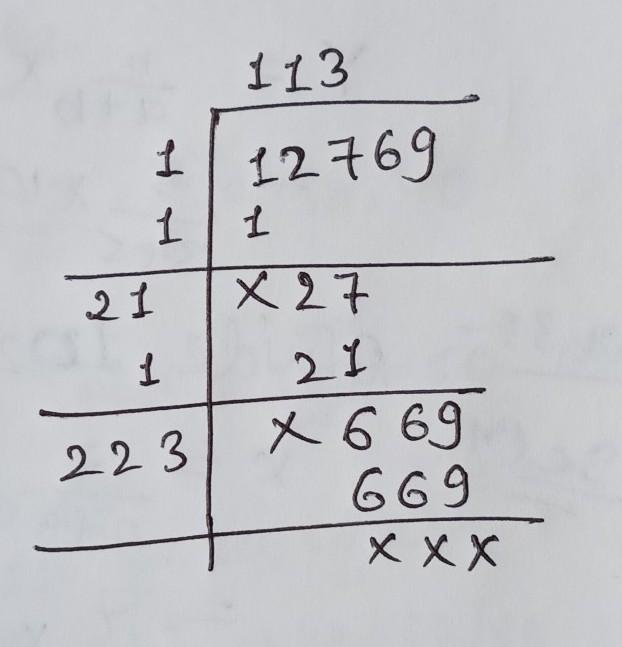 113
1 12769
1 1
21 × 27
1 21
223 × 669
669
× × ×